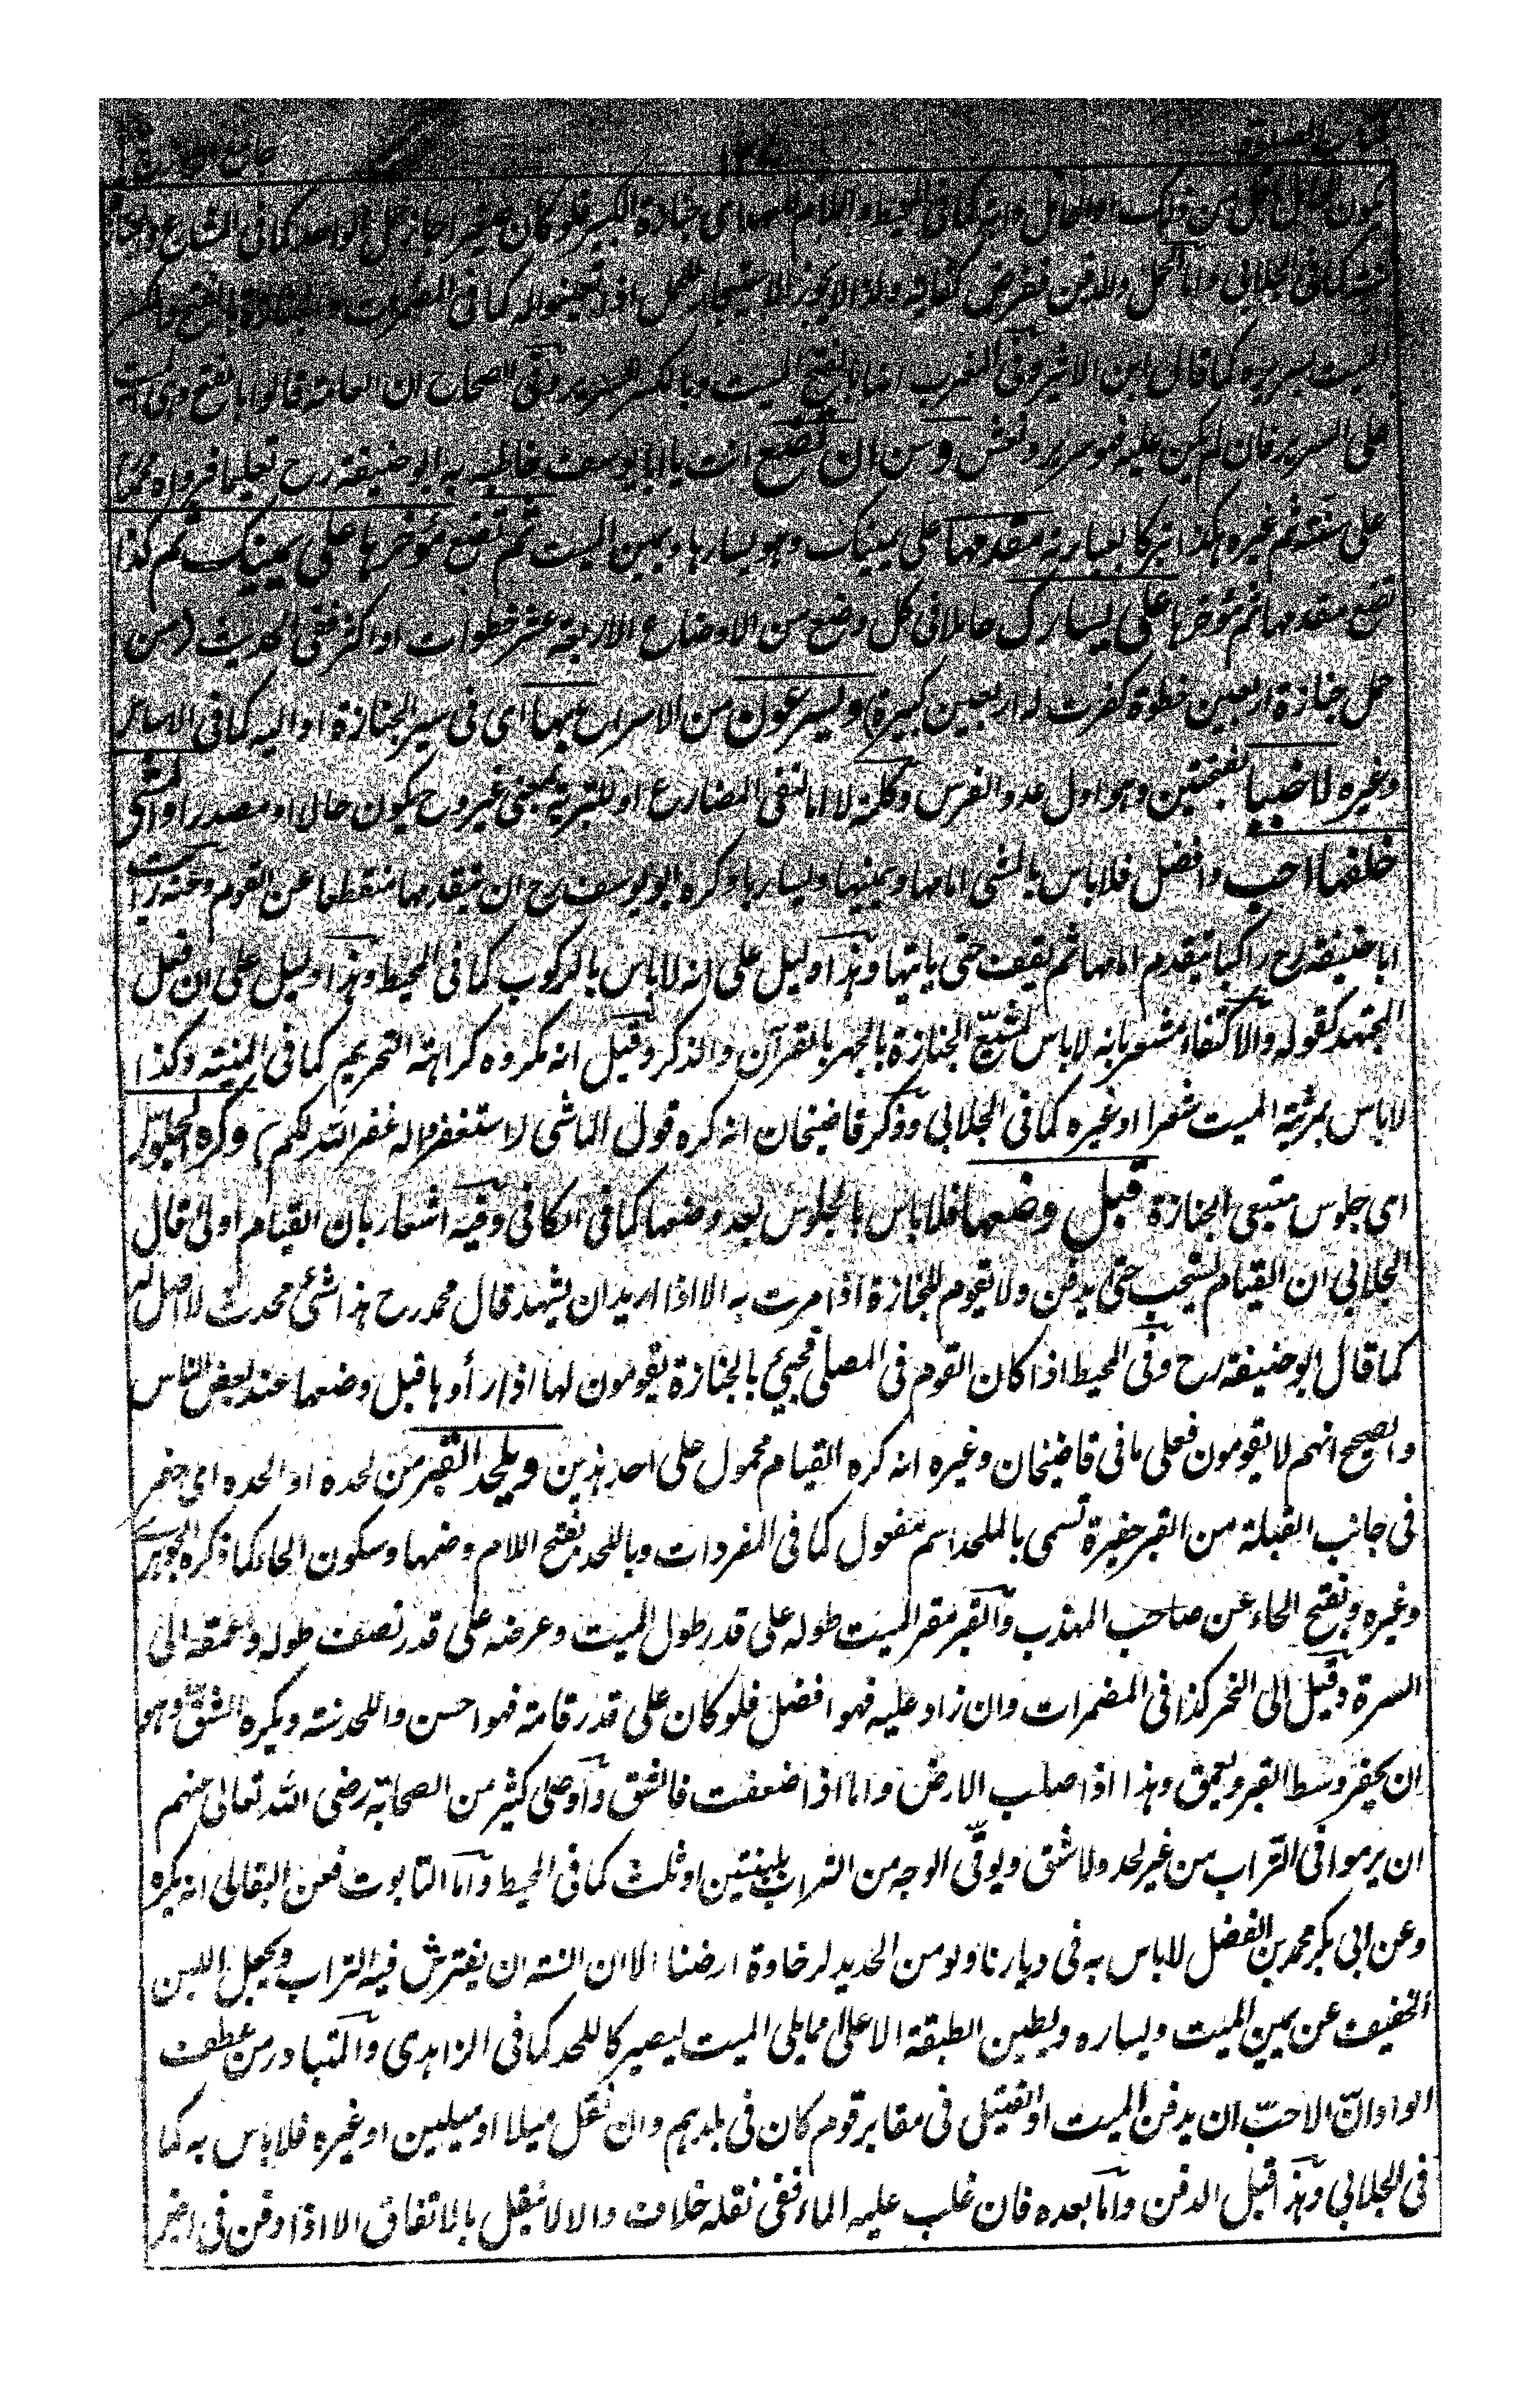 كتاب الصلوة
جامع الرموز
يكون الحامل اقل من ذلك او الحامل دابة كما فى المحيط واللام للعهد اى جنازة الكبير فلو كان صغيرا جاز حمل الواحد كما فى
كما فى الجلابى واما الحمل والدفن ففرض كفاية ولذا لا يجوز الاستيجار للحمل اذا تعينوا له كما فى المضمرات والجنازة بالفتح والكسر
الميت بسريره كما قال ابن الاثير وفى المغرب انها بالفتح الميت وبالكسر السرير وفى الصحاح ان العامة قالوا بالفتح وهى الميت
على السرير فان لم يكن عليه فهو سرير ونعش وسن ان تضع انت يا ابا يوسف خاطبه به ابو حنيفة رح تعليما فرواه محمد
على سننه ثم غيره هكذا تبركا بعبارته مقدمها على يمينك وهو يسارها ويمين الميت ثم تضع مؤخرها على يمينك ثم كذا
تضع مقدمها ثم مؤخرها على يسارك حاملا فى كل وضع من الاوضاع الاربعة عشر خطوات او اكثر ففى الحديث (من
حمل جنازة اربعين خطوة كفرت له اربعين كبيرة) ويسرعون من الاسراع بها اى فى سير الجنازة او اليه كما فى الاساس
وغيره لا خببا بفتحتين وهو اول عدو الفرس وكلمة لا اما لنفى المضارع او للتبرية بمعنى غير وح يكون حالا او مصدرا والمشى
خلفها احب وافضل فلا باس بالمشى امامها ويمينها ويسارها وكره ابو يوسف رح ان يتقدمها منقطعا عن القوم وعنه رأيت
ابا حنيفة رح راكبا يتقدم امامها ثم يقف حتى ياتيها وهذا دليل على انه لا باس بالركوب كما فى المحيط وهذا دليل على ان فعل
المجتهد كقوله والاكتفاء مشعر بانه لا باس لمشيّع الجنازة بالجهر بالقرآن والذكر وقيل انه مكروه كراهة التحريم كما فى المنية وكذا
لا باس بمرثية الميت شعرا او غيره كما فى الجلابى وذكر قاضيخان انه كره قول الماشى لا استغفروا له غفر الله لكم، وكره الجلوس
اى جلوس متبعى الجنازة قبل وضعها فلا باس بالجلوس بعد وضعها كما فى الكافى وفيه اشعار بان القيام اولى قال
الجلابى ان القيام يستحب حتى يدفن ولا يقوم للجنازة اذا مرت به الا اذا اريد ان يشهد قال محمد رح هذا شئ محدث لا اصل له
كما قال ابو حنيفة رح وفى المحيط اذا كان القوم فى المصلى فجيئ بالجنازة يقومون لها اذا رأوها قبل وضعها عند بعض الناس
والصحيح انهم لا يقومون فعلى ما فى قاضيخان وغيره انه كره القيام محمول على احد هذين ويلحد القبر من لحده او الحده اى حفر
فى جانب القبلة من القبر حفيرة تسمى بالملحد اسم مفعول كما فى المفردات وباللحد بفتح اللام وضمها وسكون الحاء كما ذكره الجوهرى
وغيره وبفتح الحاء عن صاحب المهذب والقبر مقر الميت طوله على قدر طول الميت وعرضه على قدر نصف طوله وعمقه الى
السرة وقيل الى النحر كذا فى المضمرات وان زاد عليه فهو افضل فلو كان على قدر قامة فهو احسن واللحد سنة ويكره الشق وهو
ان يحفر وسط القبر ويعمق وهذا اذا صلب الارض واما اذا ضعفت فالشق واوصى كثير من الصحابة رضى الله تعالى عنهم
ان يرموا فى التراب من غير لحد ولا شق ويوقّى الوجه من التراب بلبنتين او ثلث كما فى المحيط واما التابوت فعن البقالى انه يكره
وعن ابى بكر محمد بن الفضل لا باس به فى ديارنا ولو من الحديد لرخاوة ارضنا الا ان السنة ان يفترش فيه التراب ويجعل اللبن
الخفيف عن يمين الميت ويساره ويطين الطبقة الاعلى مما يلى الميت ليصير كاللحد كما فى الزاهدى والمتبادر من عطف
الواو انّ الاحبّ ان يدفن الميت او القتيل فى مقابر قوم كان فى بلدهم وان نقل ميلا او ميلين او غيره فلا باس به كما
فى الجلابى وهذا قبل الدفن واما بعده فان غلب عليه الماء ففى نقله خلاف والا لا ينقل بالاتفاق الا اذا دفن فى ارض